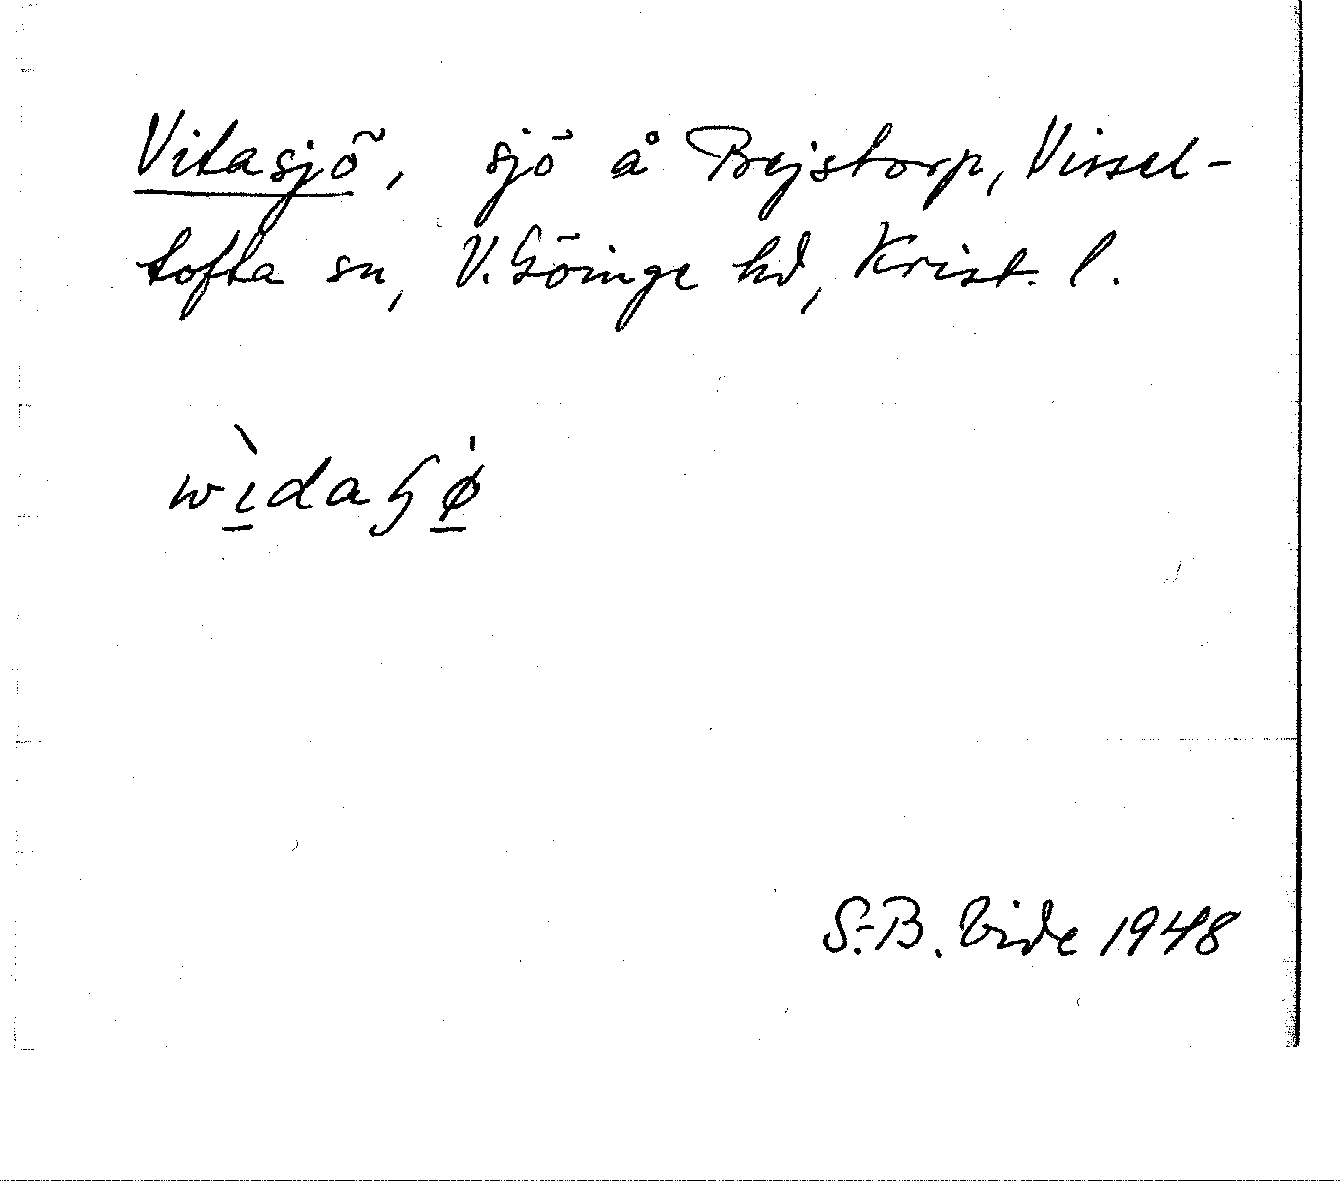 Vitasjö, sjö å Bejstorp, Vissel-
tofta sn, V. Göinge hd, Krist. l.
wìdaɧø̍
S.-B. Vide 1948